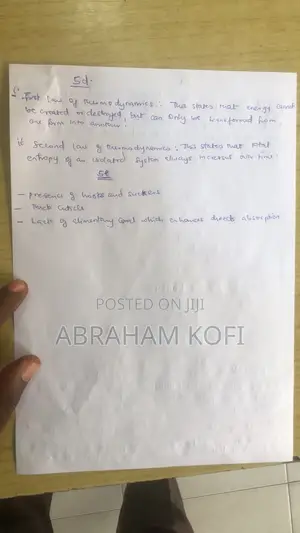 5d.
i. First law of thermodynamics: This states that energy cannot
be created or destroyed, but can only be transformed from
one form into another.
ii) Second law of thermodynamics: This states that total
entropy of an isolated system always increases over time.
5e
- presence of hooks and suckers
- Thick cuticle
- Lack of alimentary canal which enhances directs absorption
POSTED ON JIJI
ABRAHAM KOFI